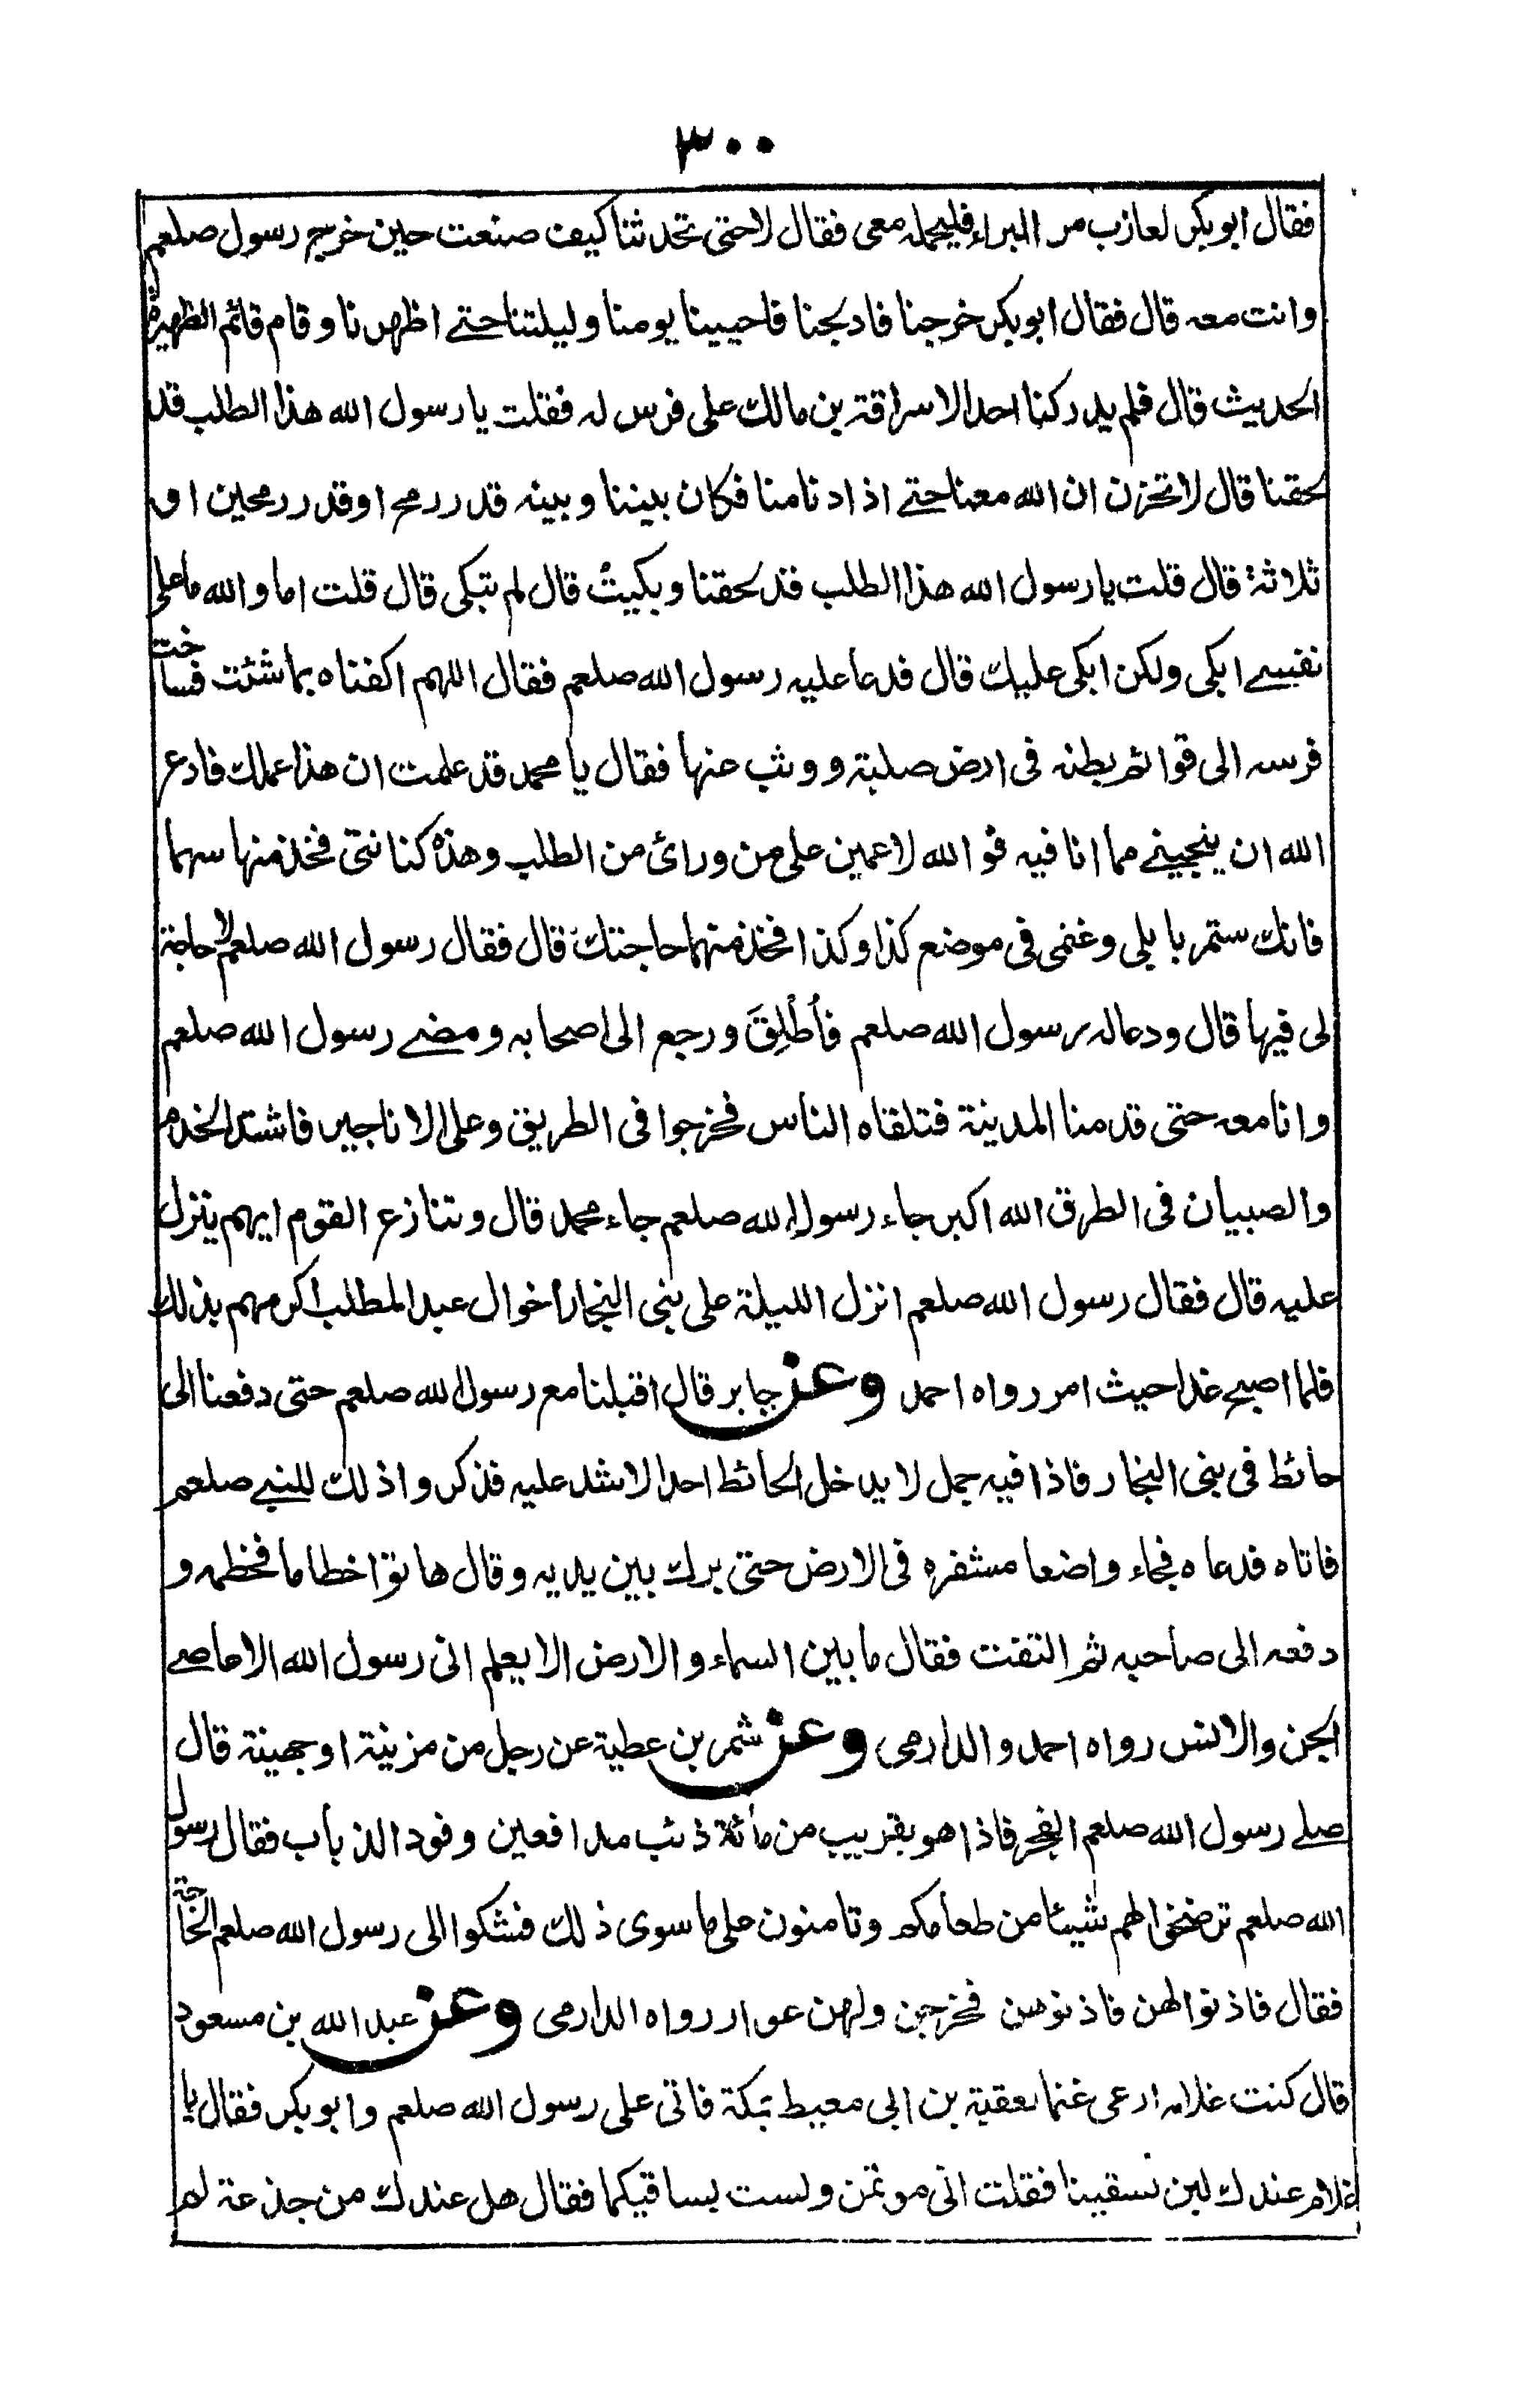 ٣٠٠
فقال ابوبكر لعازب مر البراء فليحمله معى فقال لاحتى تحدثنا كيف صنعت حين خرج رسول صلعم
وانت معه قال فقال ابوبكر خرجنا فادلجنا فاحيينا يومنا وليلتنا حتے اظهرنا وقام قائم الظهيرة
الحديث قال فلم يدركنا احد الا سراقة بن مالك على فرس له فقلت يا رسول الله هذا الطلب قد
لحقنا قال لا تحزن ان الله معنا حتے اذا دنا منا فكان بيننا وبينه قدر رمح او قدر رمحين او
ثلاثة قال قلت يا رسول الله هذا الطلب قد لحقنا وبكيتُ قال لم تبكى قال قلت اما والله ما على
نفسے ابكى ولكن ابكى عليك قال فدعا عليه رسول الله صلعم فقال اللهم اكفناه بما شئت فساخت
فرسه الى قوائم بطنه فى ارض صلبة ووثب عنها فقال يا محمد قد علمت ان هذا عملك فادع
الله ان ينجينے مما انا فيه فو الله لاعمين على من ورائ من الطلب وهذه كنانتى فخذ منها سهما
فانك ستمر بابلى وغنمى فى موضع كذا وكذا فخذ منهما حاجتك قال فقال رسول الله صلعم لا حاجة
لى فيها قال ودعا له رسول الله صلعم فأُطْلِقَ ورجع الى اصحابه ومضے رسول الله صلعم
وانا معه حتى قدمنا المدينة فتلقاه الناس فخرجوا فى الطريق وعلى الاناجير فاشتد الخدم
والصبيان فى الطرق الله اكبر جاء رسول الله صلعم جاء محمد قال وتنازع القوم ايهم ينزل
عليه قال فقال رسول الله صلعم انزل الليلة على بنى النجار اخوال عبد المطلب اكرمهم بذلك
فلما اصبح غدا حيث امر رواه احمد وعن جابر قال اقبلنا مع رسول الله صلعم حتى دفعنا الى
حائط فى بنى النجار فاذا فيه جمل لا يدخل الحائط احد الا شد عليه فذكروا ذلك للنبے صلعم
فاتاه فدعاه فجاء واضعا مشفره فى الارض حتى برك بين يديه وقال هاتوا خطاما فخطمه و
دفعه الى صاحبه ثم التفت فقال ما بين السماء والارض الا يعلم انى رسول الله الا عاصے
الجن والانس رواه احمد والدارمى وعن شمر بن عطية عن رجل من مزينة او جهينة قال
صلے رسول الله صلعم الفجر فاذا هو بقريب من مائة ذئب مدافعين وفود الذباب فقال رسول
الله صلعم ترضخوا لهم شيئا من طعامكم وتامنون على ما سوى ذلك فشكوا الى رسول الله صلعم الحاجة
فقال فاذنوا لهن فاذنوهن فخرجن ولهن عوار رواه الدارمى وعن عبد الله بن مسعود
قال كنت غلاما ارعى غنما لعقبة بن ابى معيط بمكة فاتى على رسول الله صلعم وابوبكر فقال يا
غلام عندك لبن تسقينا فقلت انى موتمن ولست بساقيكما فقال هل عندك من جذعة لم